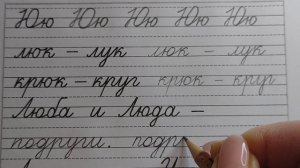 Юю Юю Юю Юю Юю
люк – лук люк – лук
крюк – круг крюк – круг
Люба и Люда –
подруги. подр